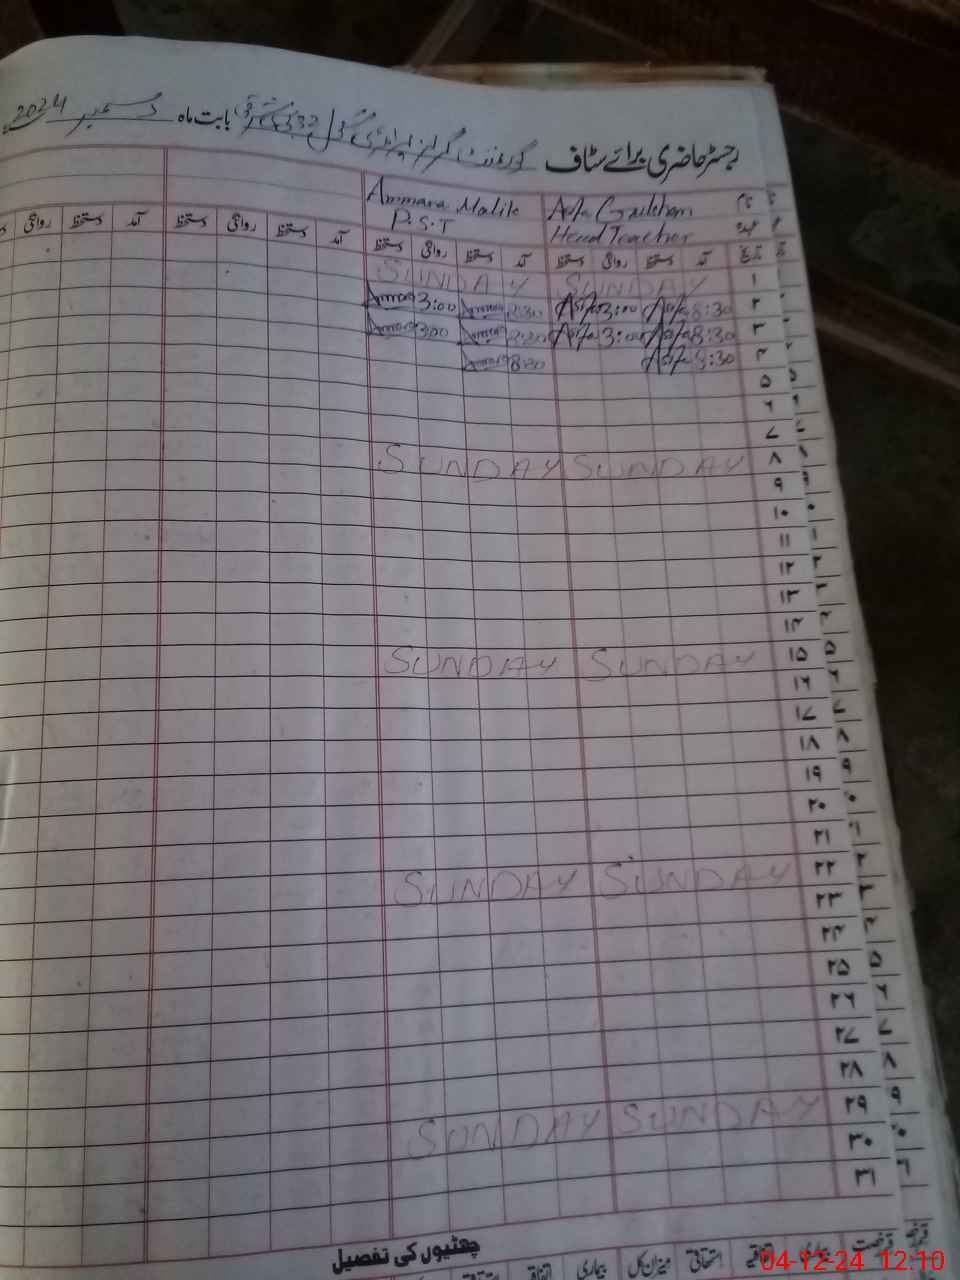 رجسٹر حاضری برائے سٹاف گورنمنٹ گرلز پرائمری بابت ماہ دسمبر 2024
نام Ammara Malik
عہدہ Head Teacher P.S.T
تاریخ آمد دستخط روانگی دستخط آمد دستخط روانگی دستخط آمد دستخط روانگی دستخط آمد دستخط روانگی
۱ SUNDAY SUNDAY
۲ 8:30 Asifa 3:00 Asifa 8:30 Ammara 3:00 Ammara
۳ 8:30 Asifa 3:00 Asifa 8:30 Ammara 3:00 Ammara
۴ 8:30 Asifa 8:30 Ammara
۵
۶
۷
۸ SUNDAY SUNDAY
۹
۱۰
۱۱
۱۲
۱۳
۱۴
۱۵ SUNDAY SUNDAY
۱۶
۱۷
۱۸
۱۹
۲۰
۲۱
۲۲ SUNDAY SUNDAY
۲۳
۲۴
۲۵
۲۶
۲۷
۲۸
۲۹ SUNDAY SUNDAY
۳۰
۳۱
چھٹیوں کی تفصیل
رخصت بیماری اتفاقیہ استحقاقی میزان کل بیماری اتفاقیہ
04-12-24 12:10